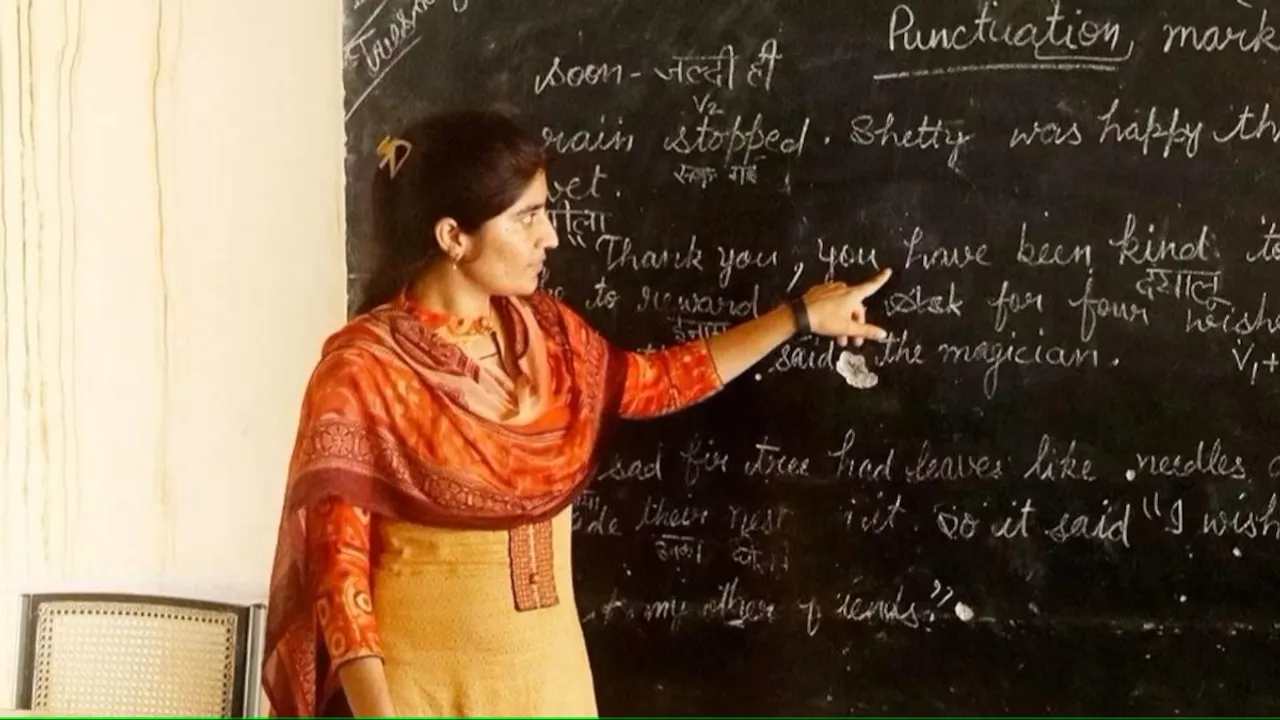 Punctuation mark
soon - जल्दी ही
V2
rain stopped. Shetty was happy th
रुक गई
wet.
गीला
"Thank you, you have been kind to
दयालु
to reward Ask for four wish
ईनाम
said the magician. V1+
sad fir tree had leaves like needles
their nest it. So it said "I wish
उनका
my other friends".